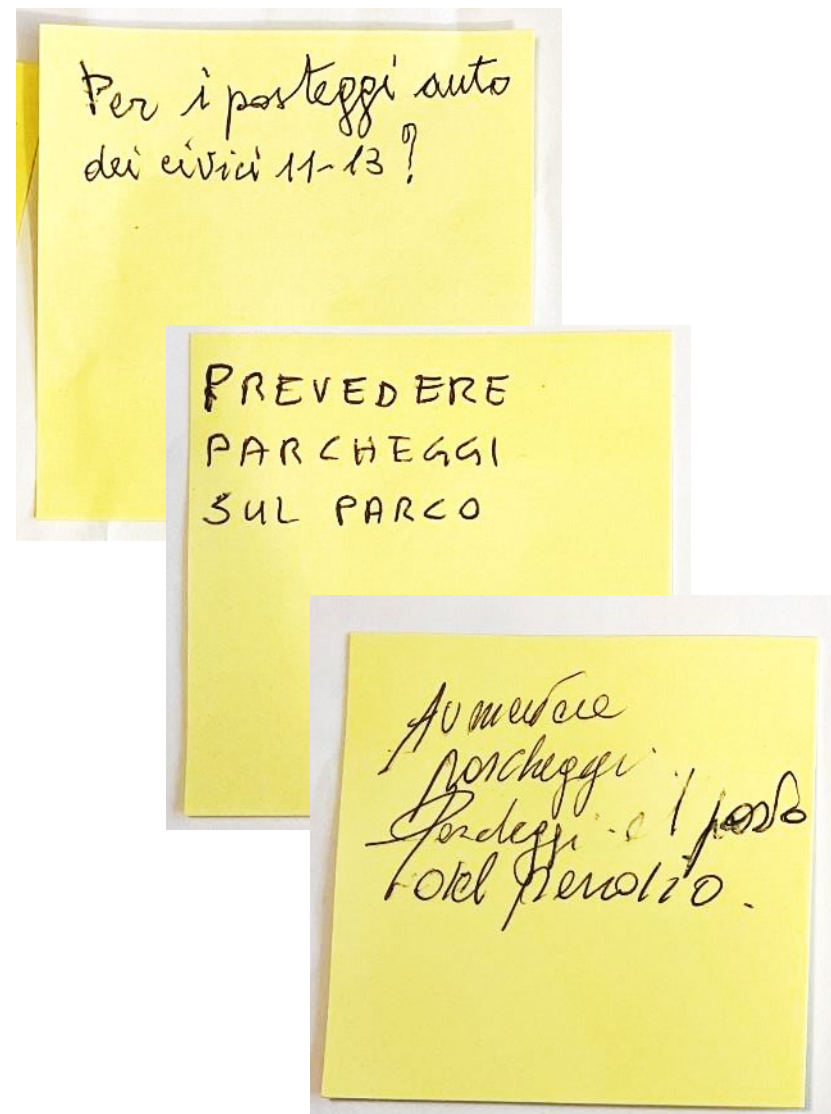 Per i posteggi auto
dei civici 11-13?
PREVEDERE
PARCHEGGI
SUL PARCO
Aumentare
parcheggi
Posteggi al posto
del